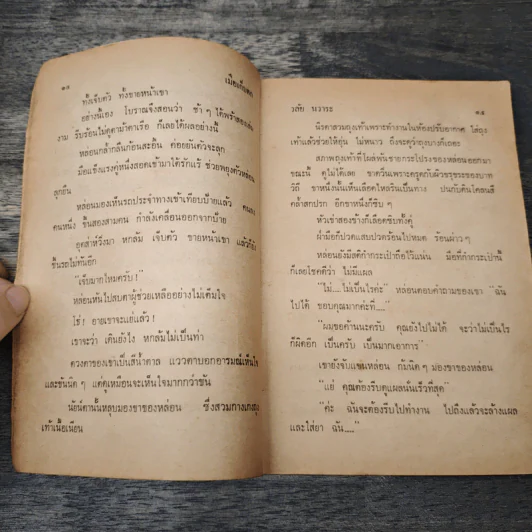 ๑๔ เมื่อเก็บตก
ทั้งเจ็บตัว ทั้งขายหน้าเขา
อย่างนี้เอง โบราณจึงสอนว่า ช้า ๆ ได้พร้าสองเล่ม
งาม รีบร้อนไม่ดูตาม้าตาเรือ ก็เลยได้ผลอย่างนี้
หล่อนกล้ำกลืนก้อนสะอื้น ค่อยยันตัวจะลุก
มือแข็งแรงคู่หนึ่งสอดเข้ามาใต้รักแร้ ช่วยพยุงตัวหล่อน
ลุกยืน
หล่อนมองเห็นรถประจำทางเข้าเทียบป้ายแล้ว คนลง
คนหนึ่ง ขึ้นสองสามคน กำลังเคลื่อนออกจากป้าย
อุตส่าห์วิ่งมา หกล้ม เจ็บตัว ขายหน้าเขา แล้วก็ยัง
ขึ้นรถไม่ทันอีก
"เจ็บมากไหมครับ!"
หล่อนหันไปสบตาผู้ช่วยเหลืออย่างไม่เต็มใจ
โธ่! อายเขาจะแย่แล้ว!
เขาจะว่า เดินยังไง หกล้มไม่เป็นท่า
ดวงตาของเขาเป็นสีน้ำตาล แววตาบอกอารมณ์เห็นใจ
และขันนิด ๆ แต่ดูเหมือนจะเห็นใจมากกว่าขัน
นัยน์ตานั้นหลุบมองขาของหล่อน ซึ่งสวมกางเกง
เท้าเนื้อเนียน
วลัย นวาระ ๑๕
นิรดาสวมถุงเท้าเพราะทำงานในห้องปรับอากาศ ใส่ถุง
เท้าแล้วช่วยให้อุ่น ไม่หนาว ถึงจะดูว่าถุงบางก็เถอะ
สภาพถุงเท้าที่โผล่พ้นชายกระโปรงของหล่อนออกมา
ขณะนี้ ดูไม่ได้เลย ขาดวิ่นเพราะครูดกับผิวขรุขระของบาท
วิถี ขาหนึ่งนั้นเห็นเลือดไหลรินเป็นทาง ปนกับดินโคลนสี
คล้ำสกปรก อีกขาหนึ่งก็ซิบ ๆ
หัวเข่าสองข้างก็เลือดซิบทั้งคู่
ฝ่ามือก็ปวดแสบปวดร้อนไปหมด ร้อนผ่าว ๆ
หล่อนยังมีสติกำกระเป๋าถือไว้แน่น มือที่กำกระเป๋านี้
ก็เลยโชคดีกว่า ไม่มีแผล
"ไม่....ไม่เป็นไรค่ะ" หล่อนตอบคำถามของเขา "ฉัน
ไปได้ ขอบคุณมากค่ะที่...."
"ผมขอค้านนะครับ คุณยังไปไม่ได้ จะว่าไม่เป็นไร
ก็ผิดอีก เป็นครับ เป็นมากเอาการ"
เขายังจับแขนหล่อน ก้มนิด ๆ มองขาของหล่อน
"แย่ คุณต้องรีบดูแผลนั่นเร็วที่สุด"
"ค่ะ ฉันจะต้องรีบไปทำงาน ไปถึงแล้วจะล้างแผล
และใส่ยา ฉัน....."